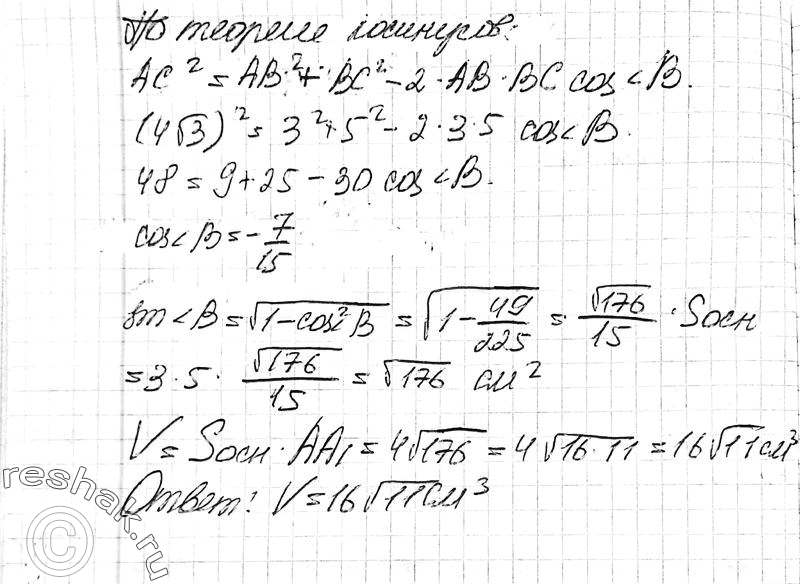 По теореме косинусов:
AC² = AB² + BC² - 2 · AB · BC cos < B.
(4√3)² = 3² + 5² - 2 · 3 · 5 cos < B.
48 = 9 + 25 - 30 cos < B.
cos < B = - 7/15
sin < B = √(1 - cos² B) = √(1 - 49/225) = √176/15 · Sосн
= 3 · 5 · √176/15 = √176 см²
V = Sосн · AA₁ = 4√176 = 4√16·11 = 16√11 см³
Ответ: V = 16√11 см³
reshak.ru
©